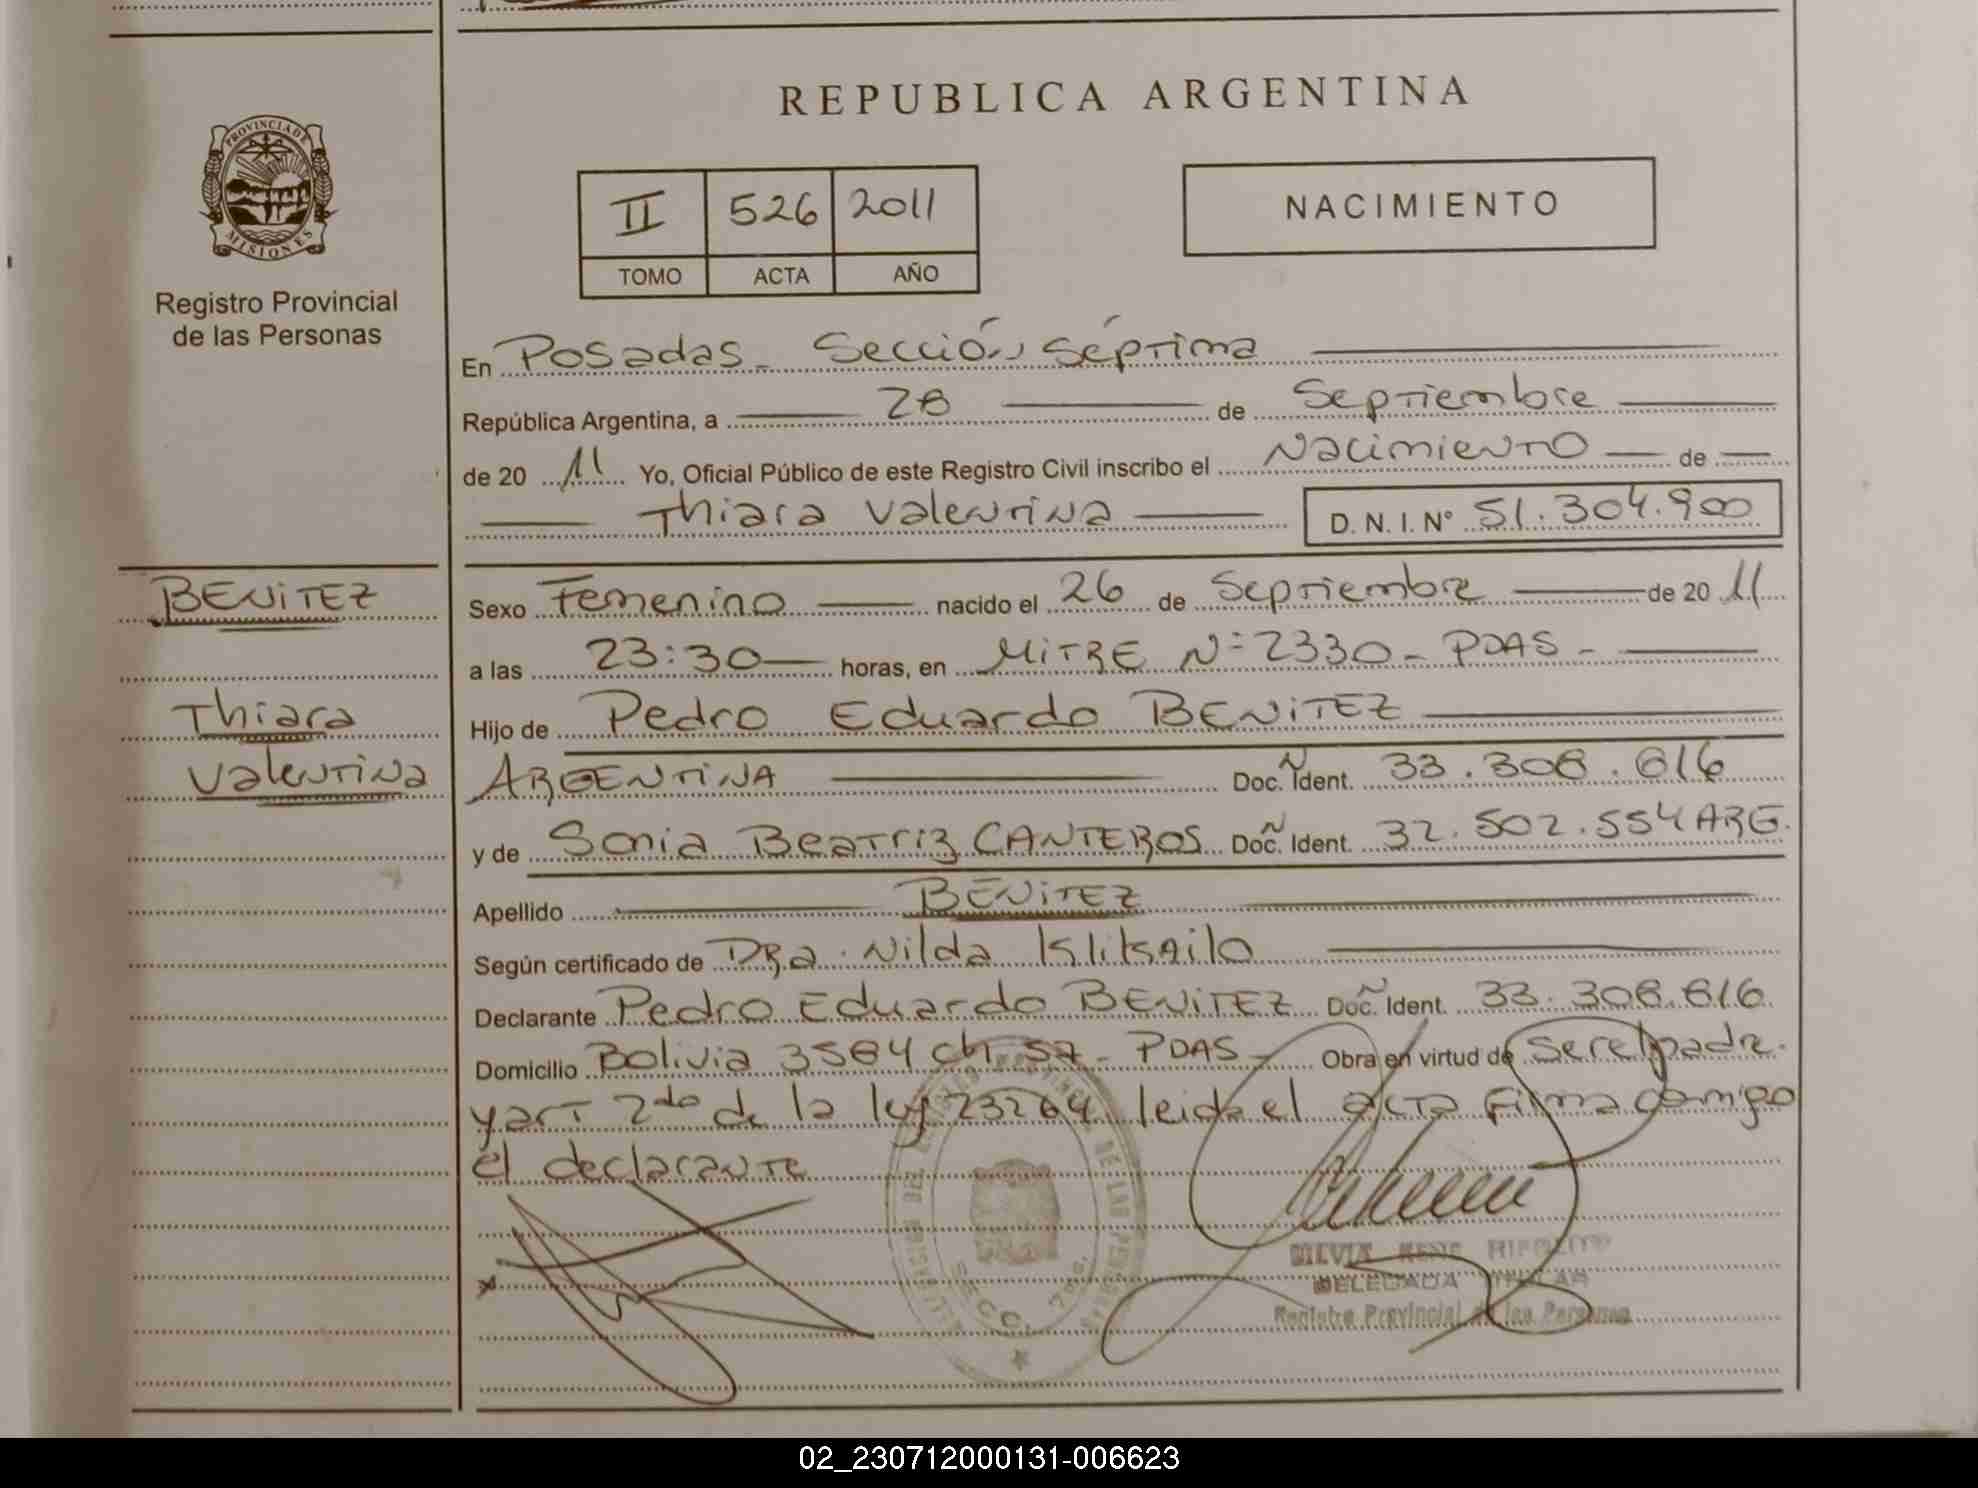 REPUBLICA ARGENTINA
PROVINCIA DE
MISIONES
Registro Provincial
de las Personas
II 526 2011
TOMO ACTA AÑO
NACIMIENTO
En Posadas - Sección Séptima
República Argentina, a 28 de Septiembre
de 20 11 Yo, Oficial Público de este Registro Civil inscribo el Nacimiento de
Thiara Valentina D.N.I. Nº 51.304.900
BENITEZ
Thiara
Valentina
Sexo Femenino nacido el 26 de Septiembre de 20 11
a las 23:30 horas, en MITRE Nº 2330 - PDAS -
Hijo de Pedro Eduardo BENITEZ
ARGENTINA Doc. Ident. 33.308.616
y de Sonia Beatriz CANTEROS Doc. Ident. 32.502.554 ARG.
Apellido BENITEZ
Según certificado de DRa. Nilda
Declarante Pedro Eduardo BENITEZ Doc. Ident. 33.308.616
Domicilio Bolivia 3584 ch 57 - PDAS - Obra en virtud de ser el padre
y art 2do de la ley 23264 leida el acta firma conmigo
el declarante
SECC. 7ma.
SILVIA RENE HIPOLITO
DELEGADA TITULAR
Registro Provincial de las Personas
02_230712000131-006623